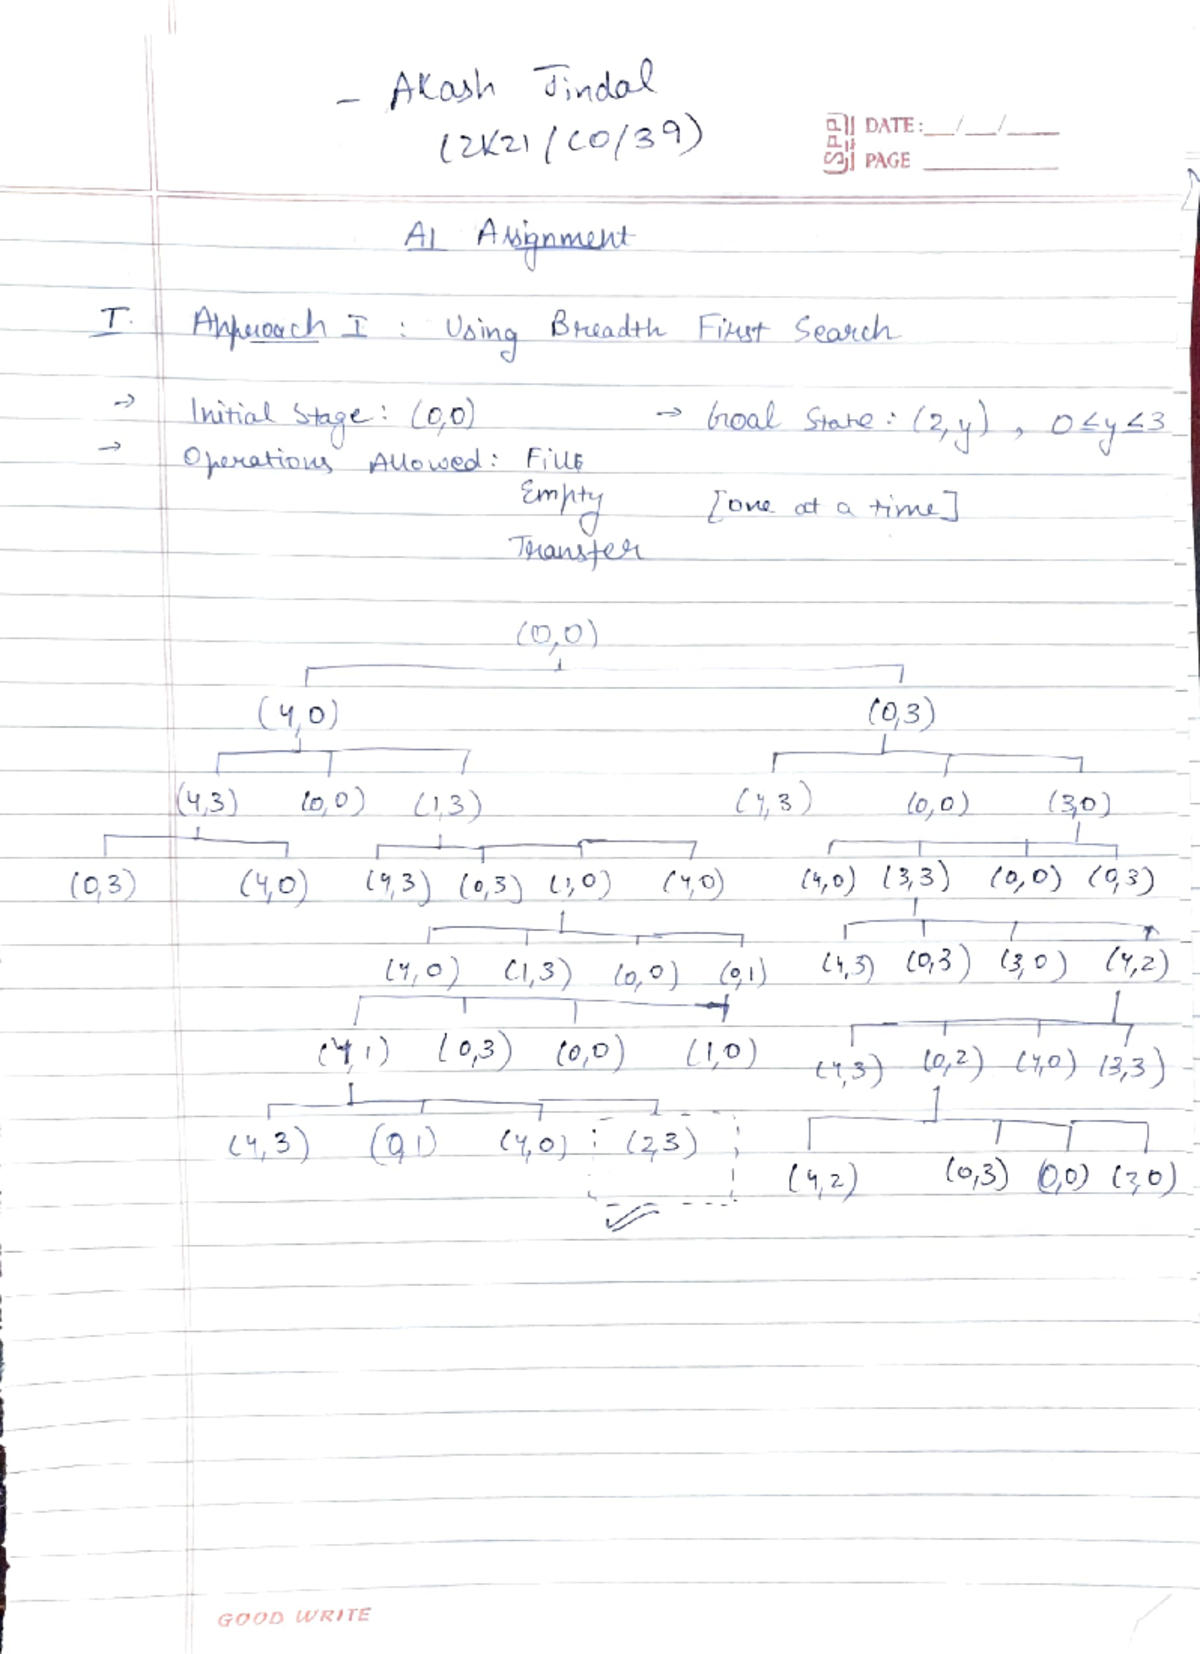 - Akash Jindal
(2K21/CO/39)
SPP DATE: __/__/____
PAGE ________
AI Assignment
I. Approach I : Using Breadth First Search
→ Initial Stage: (0,0) → Goal State: (2,y) , 0≤y≤3
→ Operations Allowed: Fill
Empty [one at a time]
Transfer
(0,0)
(4,0) (0,3)
(4,3) (0,0) (1,3) (4,3) (0,0) (3,0)
(0,3) (4,0) (4,3) (0,3) (1,0) (4,0) (4,0) (3,3) (0,0) (0,3)
(4,0) (1,3) (0,0) (0,1) (4,3) (0,3) (3,0) (4,2)
(4,1) (0,3) (0,0) (1,0) (4,3) (0,2) (4,0) (3,3)
(4,3) (0,1) (4,0) (2,3) (4,2) (0,3) (0,0) (2,0)
GOOD WRITE